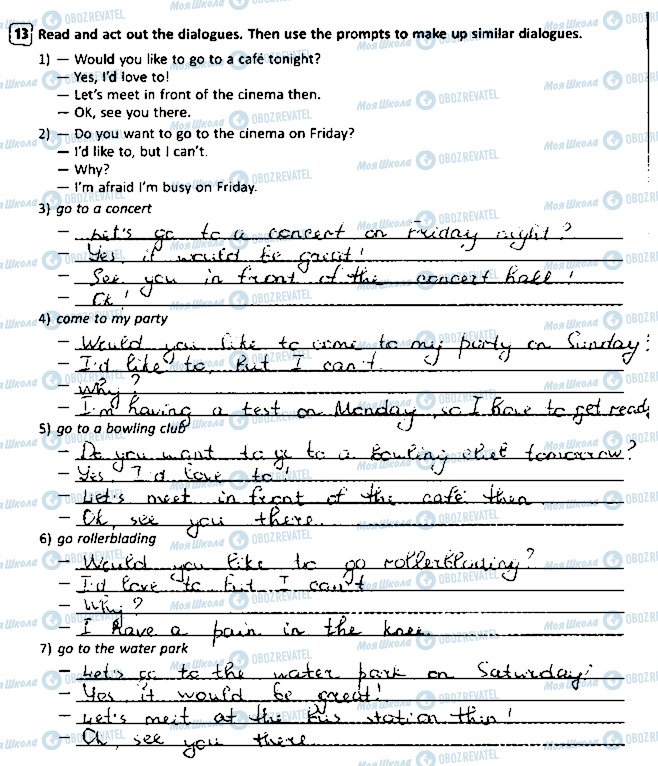 13 Read and act out the dialogues. Then use the prompts to make up similar dialogues.
1) — Would you like to go to a café tonight?
— Yes, I'd love to!
— Let's meet in front of the cinema then.
— OK, see you there.
2) — Do you want to go to the cinema on Friday?
— I'd like to, but I can't.
— Why?
— I'm afraid I'm busy on Friday.
3) go to a concert
— Let's go to a concert on Friday night?
— Yes it would be great!
— See you in front of the concert hall!
— Ok!
4) come to my party
— Would you like to come to my party on Sunday?
— I'd like to, but I can't.
— Why?
— I'm having a test on Monday, so I have to get ready
5) go to a bowling club
— Do you want to go to a bowling club tomorrow?
— Yes, I'd love to!
— Let's meet in front of the café then
— Ok, see you there.
6) go rollerblading
— Would you like to go rollerblading?
— I'd love to but I can't
— Why?
— I have a pain in the knee
7) go to the water park
— Let's go to the water park on Saturday?
— Yes, it would be great!
— Let's meet at the bus station then!
— Ok, see you there
Моя Школа OBOZREVATEL